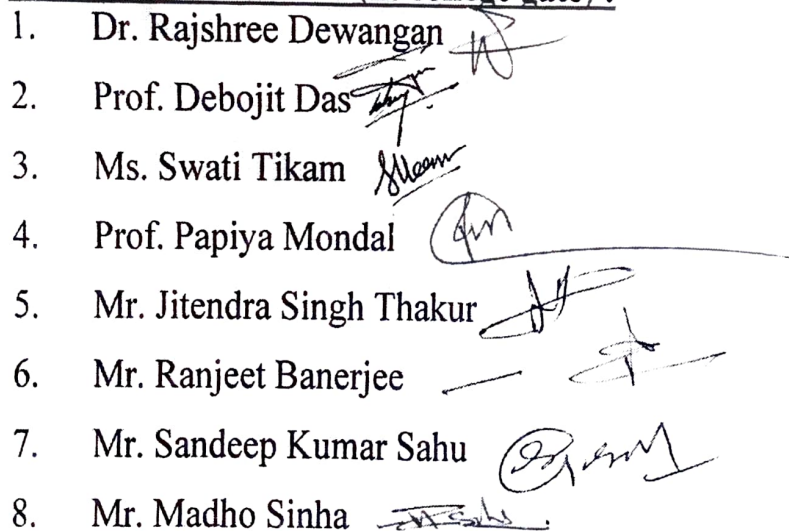 college gate) :
1. Dr. Rajshree Dewangan
2. Prof. Debojit Das
3. Ms. Swati Tikam
4. Prof. Papiya Mondal
5. Mr. Jitendra Singh Thakur
6. Mr. Ranjeet Banerjee
7. Mr. Sandeep Kumar Sahu
8. Mr. Madho Sinha